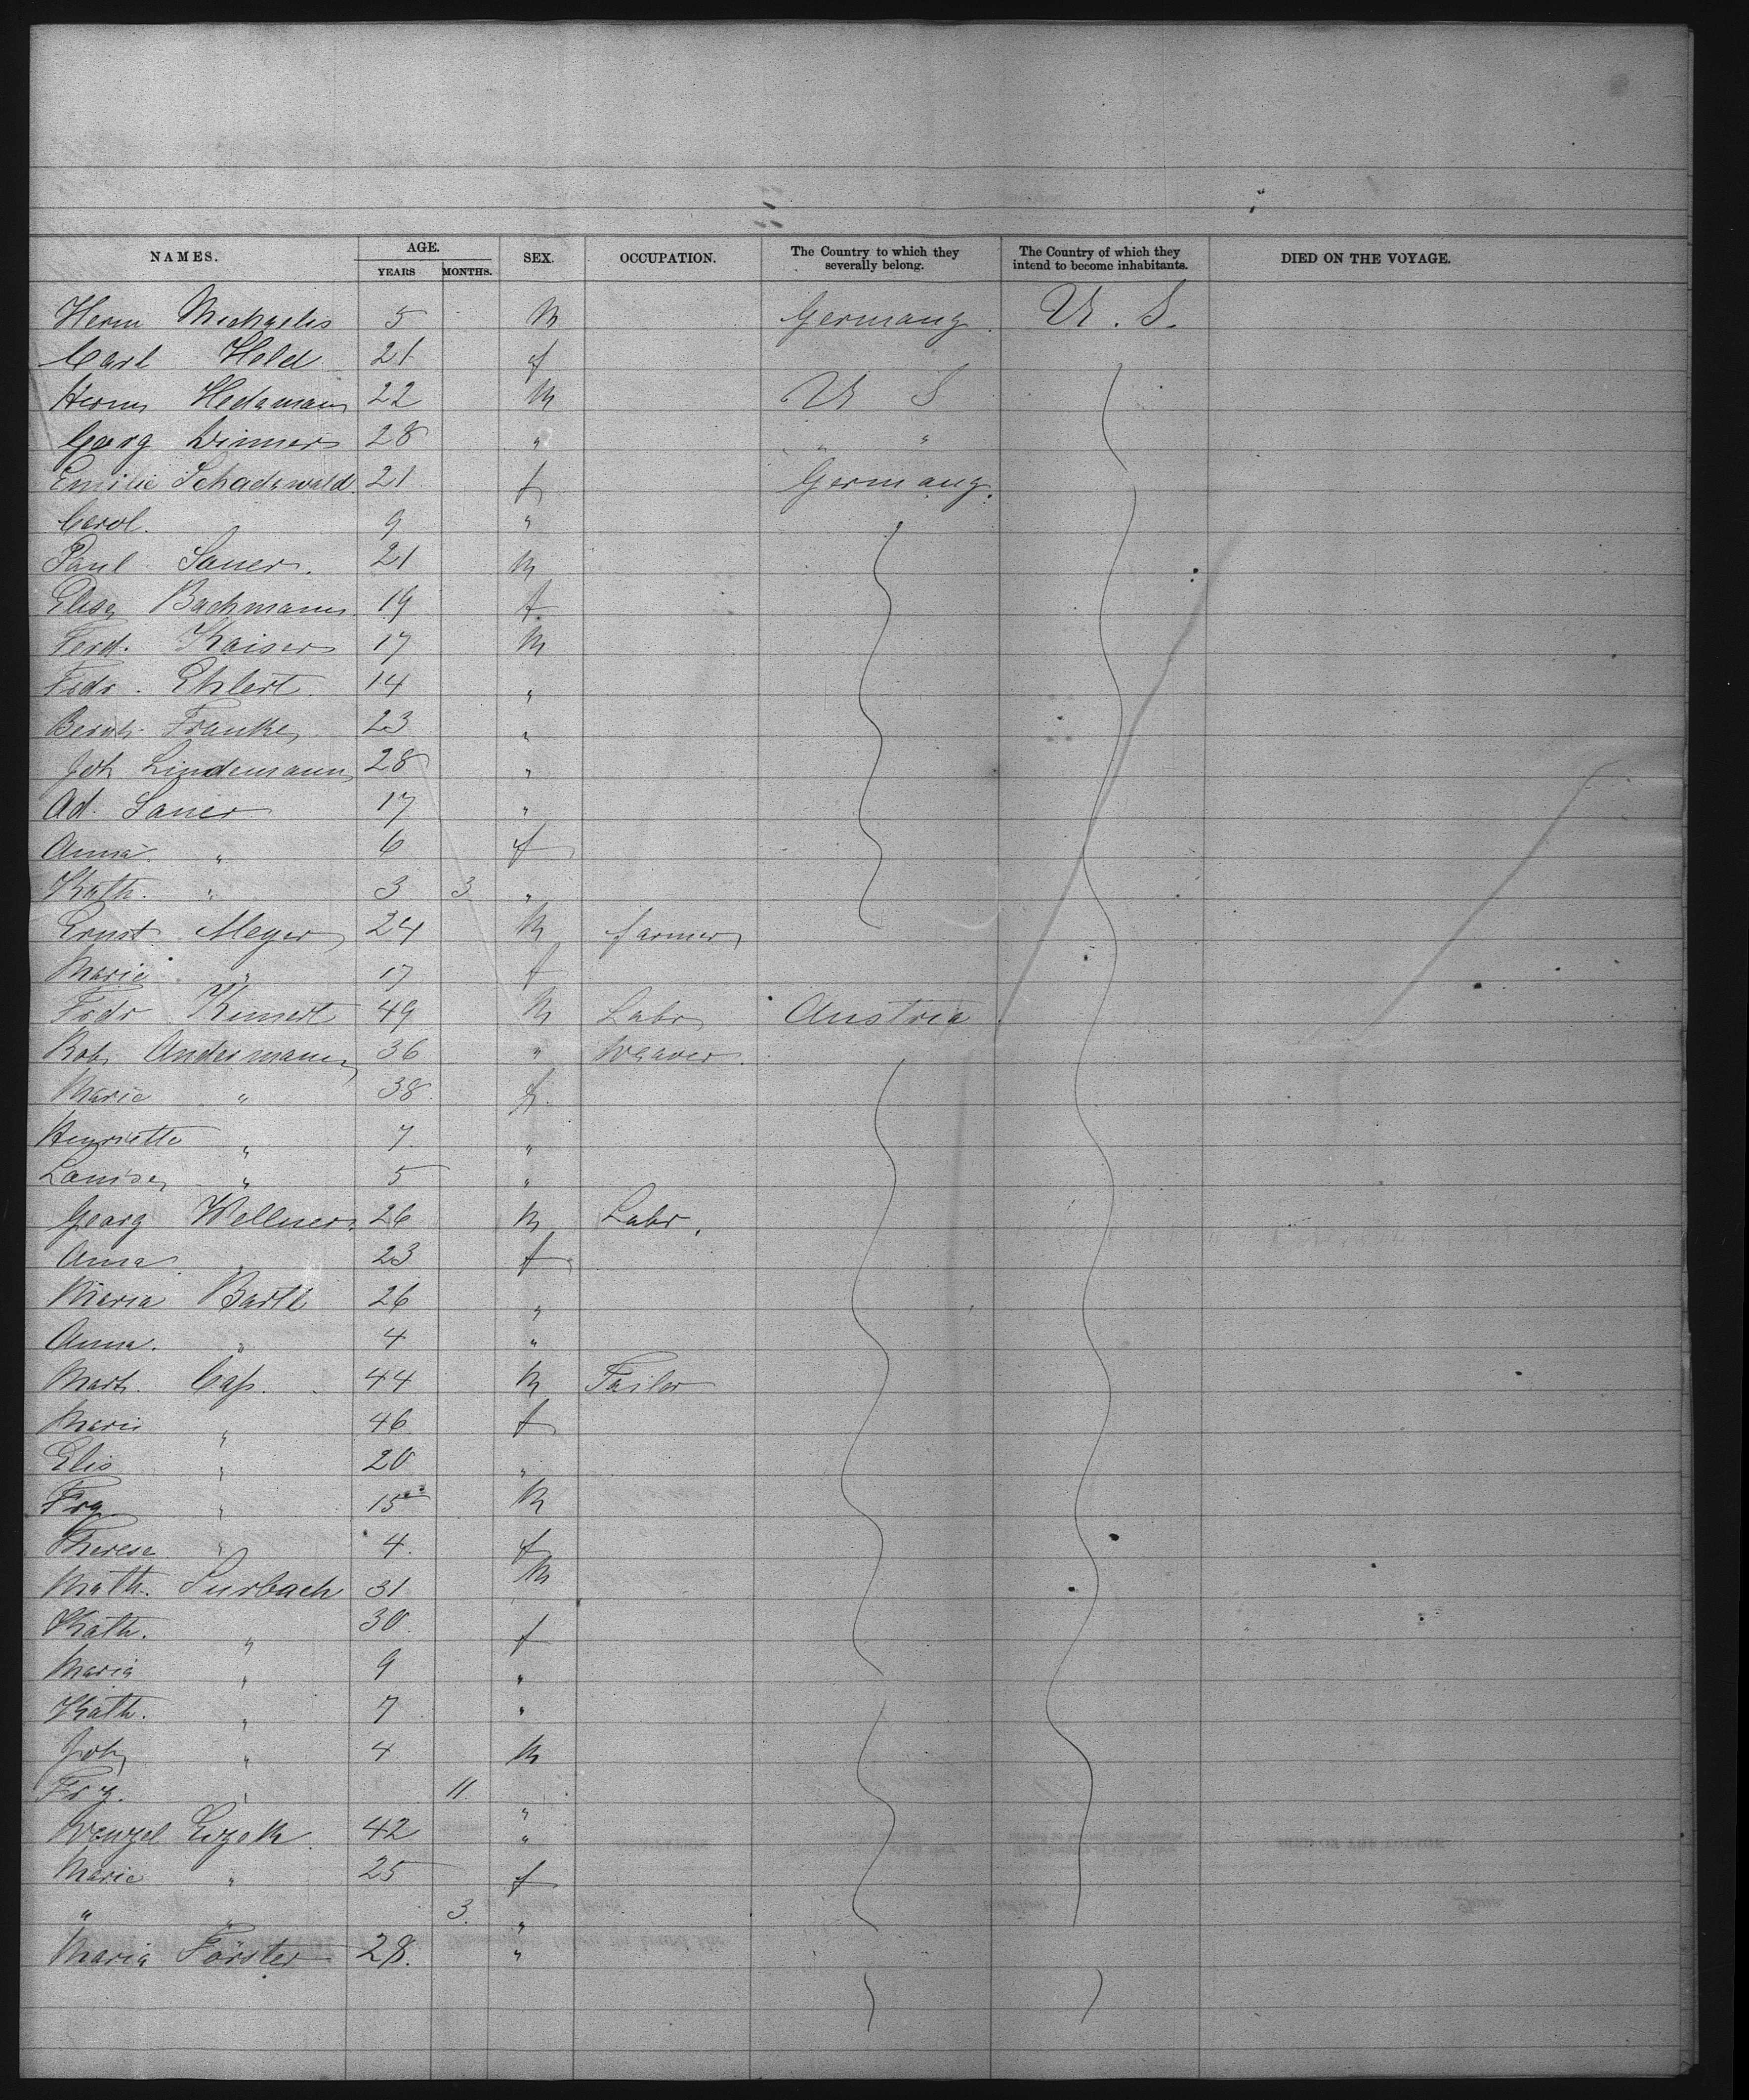 NAMES. AGE. YEARS MONTHS. SEX. OCCUPATION. The Country to which they severally belong. The Country of which they intend to become inhabitants. DIED ON THE VOYAGE.
Herm Michaelis 5 M Germany U. S.
Carl Held 21 f
Herm Hedemann 22 M U S
Georg Dimmer 28 " " "
Emilie Schadewald 21 f Germany.
Carol. 9 "
Paul Sauer. 21 M
Elise Bachmann 19 f
Ferd. Kaiser 17 M
Frdr. Ehlert 14 "
Bernh. Franke 23 "
Joh Lindemann 28 "
Ad. Sauer 17 "
Anna " 6 f
Kath. " 3 3 "
Ernst Meyer 24 M farmer
Marie " 17 f
Frdr Kunert 49 M Labr Austria
Rob. Andermann 36 " Weaver
Marie " 38 f.
Henriette " 7 "
Louise " 5 "
Georg Wellner 26 M Labr.
Anna " 23 f
Maria Bartl 26 "
Anna. " 4 "
Math. Cap. 44 M Tailor
Marie " 46 f
Elis " 20 "
Frz " 15 M
Therese " 4. f
Math. Surbach 31 M
Kath. " 30 f
Maria " 9 "
Kath. " 7 "
Joh " 4 M
Frz. " 11 "
Wenzel 42 "
Marie " 25 f
" " 3. "
Maria Förster 28. "